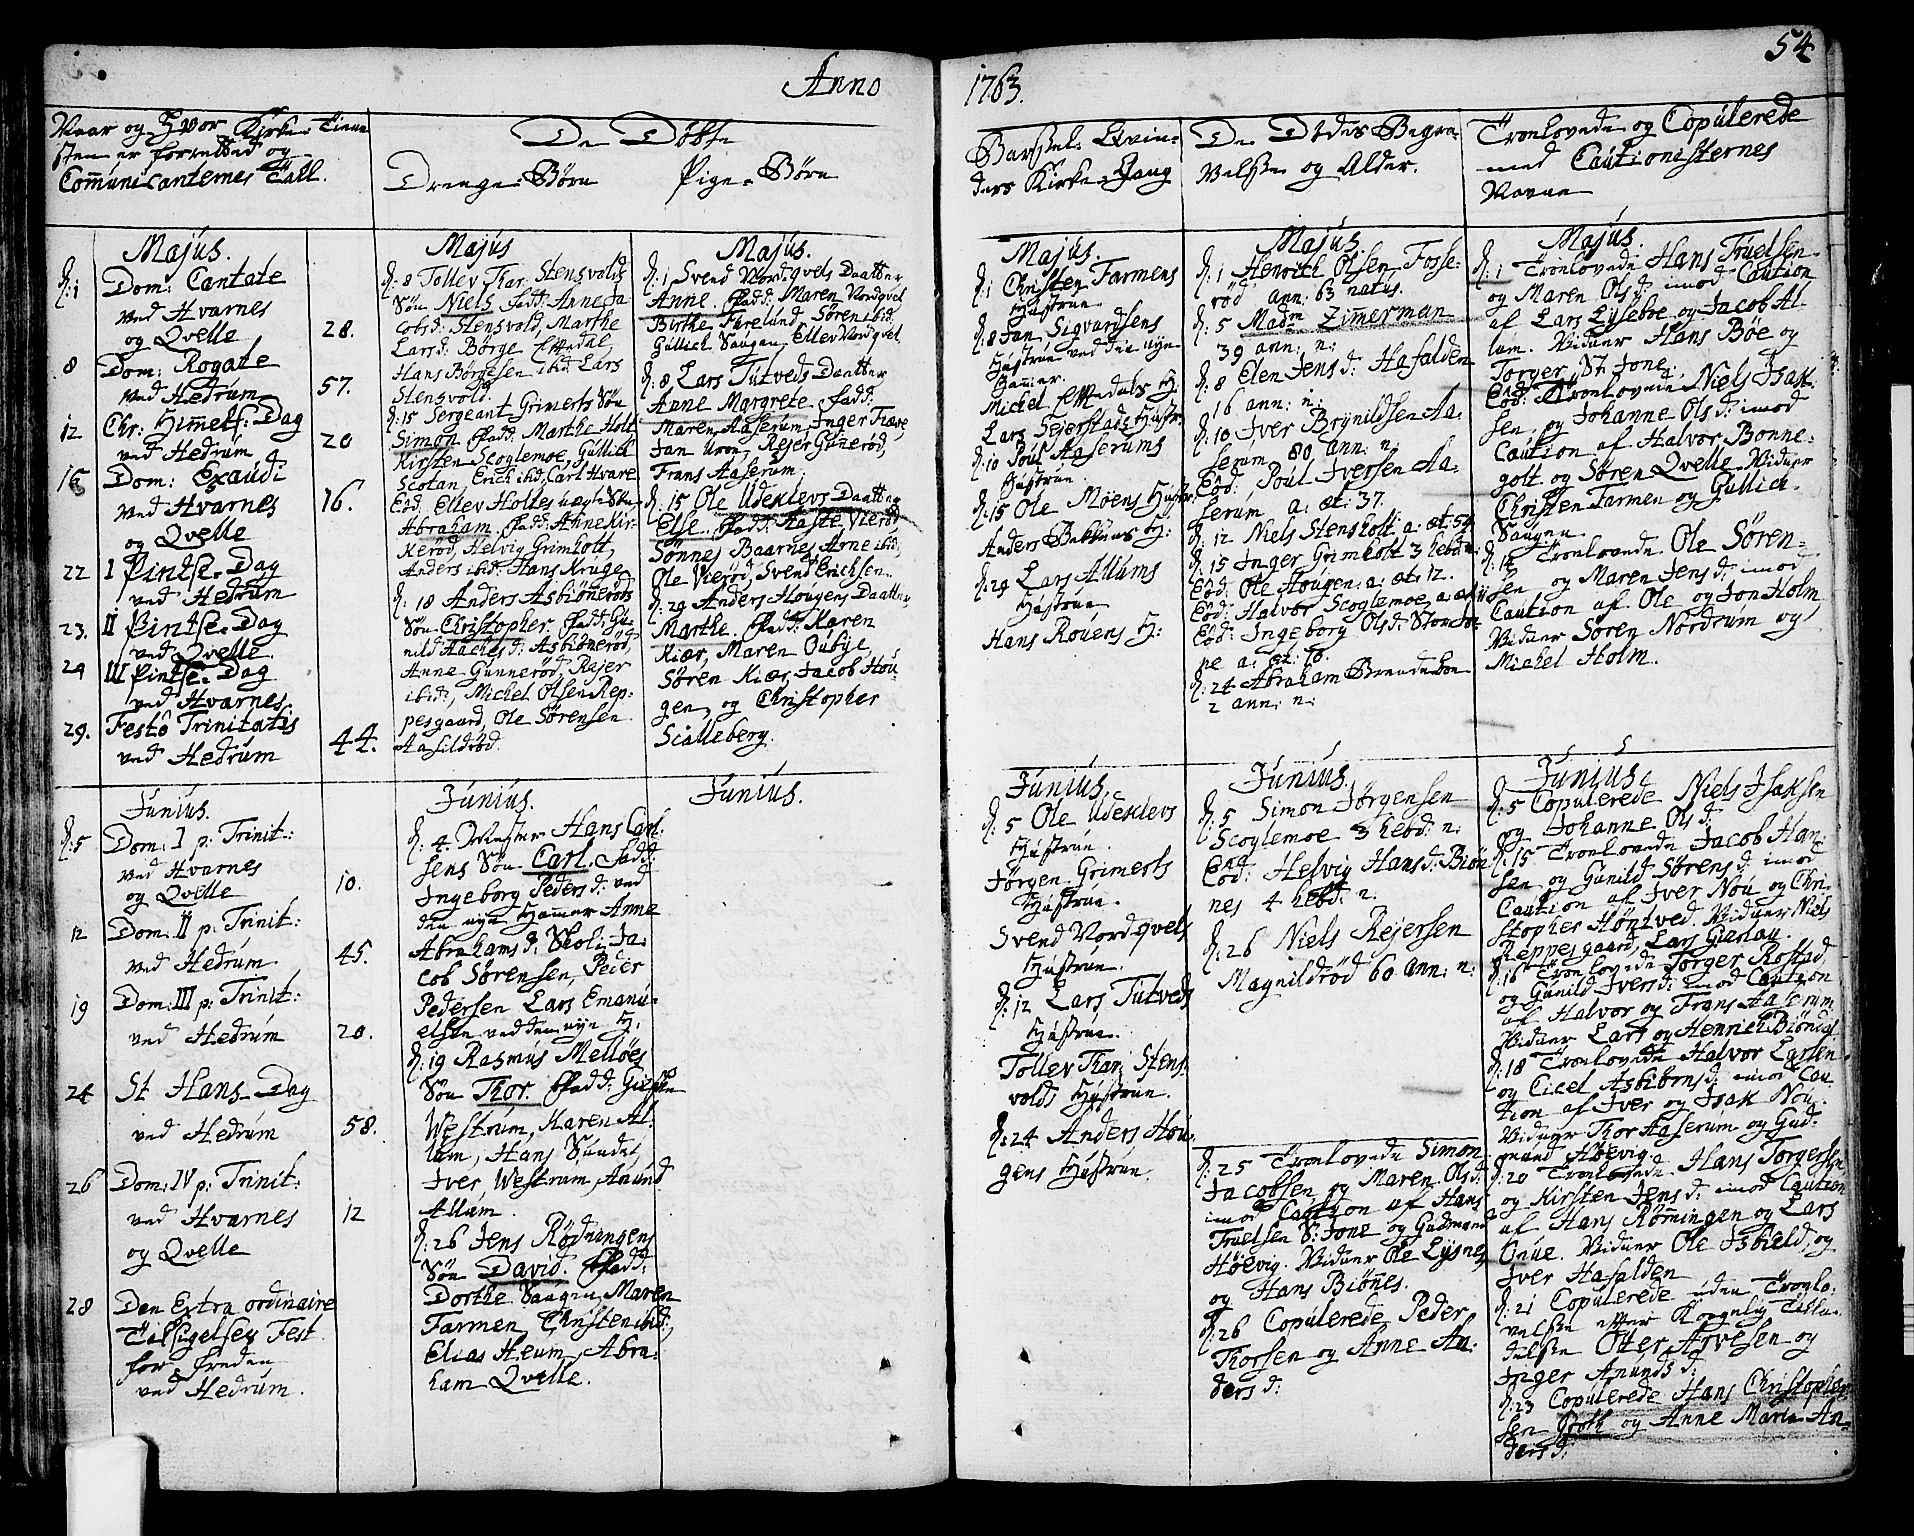 Anno
1763.
54
Naar og Hvor Kirke-Tiene
sten er forretted og
Communicanternes Tall.
De Døbte
Drenge-Børn
Pige-Børn
Barsel-Qvin-
ders Kirke-Gang
De Dødes Begra-
velse og Alder.
Troelovede og Copulerede
med Cautionisternes
Navne
Majus.
d: 1 Dom: Cantate
ved Hvarnes
og Qvelle 28.
8 Dom: Rogate
ved Hedrum 57.
12 Chr: Himmelf: Dag
ved Hedrum 20
15 Dom: Exaudi
ved Hvarnes 16.
og Qvelle
22 I Pintse-Dag
ved Hedrum
23. II Pintse-Dag
ved Qvelle.
24 III Pintse-Dag
ved Hvarnes
29. Festo Trinitatis
ved Hedrum 44.
Majus
d: 8 Tollev Thor Stensvolds
Søn Niels fadd: Anne Ja
cobsd: Stensvold, Marthe
Larsd: Børge Effte­dal
Hans Børgesen ibid: Lars
Stensvold.
d: 15 Sergeant Grimerts Søn
Simon fadd: Marthe Holt
Kirsten Scoglemoe, Gullich
Scotan, Erich ibid, Carl Hvare
Eod: Ellev Holtes uægte Søn
Abraham fadd: Anne Kir-
kerød, Helvig Grimholt,
Anders ibid: Hans Kruge
d: 18 Anders Asbiønerøds
Søn Christopher fadd: Gu-
nild Aachesd: Asbiønerød,
Anne Gunnerød, Rejer
ibid:, Michel Olsen Rep-
pesgaard, Ole Sørensen
Aasildrød.
Majus.
d: 1 Svend Nordqvels Daatter
Anne. fadd: Maren Nordqvel
Birthe Furelund, Søren ibid:
Gullich Saugen, Ellev Nordqvel
d: 8 Lars Tutveds Daatter
Anne Margrete fadd:
Maren Aaserum, Inger
Jan Rejer Gunerød,
Frans Aaserum.
d: 15 Ole Udeklevs Daatter
Else. fadd: Aaste Vierød
Sønnes Baarnes Arne ibid,
Ole Vierød, Svend Erichsen.
d: 29 Anders Hougens Daatter
Marthe. fadd: Karen
Kiær, Maren Oubye,
Søren Kiær, Jacob Hou-
gen, og Christopher
Scalleberg.
Majus.
d: 1 Christen Farmens
Hustrue
d: 8 Jan Sigvardsens
Hustrue ved die nye
Hammer.
Michel Effte­dals H:
Lars Sejerstads Hustr:
d: 10 Pouls Aaserums
Hustrue.
d: 15 Ole Moens Hustr:
Anders Bekkens H:
d: 29 Lars Allums
Hustrue
Hans Rouens H:
Majus.
d: 1 Henrich Olsen Fosse-
rød ann: 63 natus.
d: 5 Madm Zimerman
39 ann: n:
d: 8 Elen Jensd: Hafalden
16 ann: n:
d: 10 Iver Brynildsen Aa-
serum 80 ann: n:
Eod: Poul Iversen Aa-
serum a: æt: 37.
d: 12 Niels Stensholt a: æt: 54
d: 15 Inger Grimholt 3 hebd:
Eod: Ole Hougen: a: æt: 12.
Eod: Halvor Scoglemoe, a: æt: 11
Eod: Ingeborg Olsd: Stor
pe a: æt: 10.
d: 24 Abraham
2 ann: n:
Majus.
d: 1 Troelovede Hans Truelsen
og Maren Olsd: imod Caution
af Lars Lysebøe og Jacob Al
lum. Vidner Hans Bøe og
Torger St: Jone.
Eod: Troelovede Niels Isak
sen og Johanne Olsd: imod
Caution af Halvor Bonne-
golt og Søren Qvelle. Vidner
Christen Farmen og Gullich
Saugen.
d: 14 Troelovede Ole Søren-
sen og Maren Jensd: imod
Caution af Ole og Jon Holm
Vidner Søren Nordrum og
Michel Holm.
Junius.
d: 5 Dom: I p: Trinit:
ved Hvarnes
og Qvelle 10.
12 Dom: II p: Trinit:
ved Hedrum 45.
19 Dom: III p: Trinit:
ved Hedrum 20.
24 St Hans-Dag
ved Hedrum 58.
26 Dom: IV p: Trinit:
ved Hvarnes 12
og Qvelle
28 Den Extra ordinaire
Taksigelses Fest
for freden
ved Hedrum.
Junius.
d: 4. Mester Hans Carl-
sens Søn Carl. fadd:
Ingeborg Pedersd: ved
den nye Hammer Anne
Abrahamsd: Skoli, Ja-
cob Sørensen, Peder
Pedersen Lars Emanu-
elsen ved den nye H:
d: 19 Rasmus Melløes
Søn Thor. fadd: Giertrud
Westrum, Karen Al-
lum, Hans Sundet,
Iver Westrum, Anund
Allum.
d: 26 Jens Rødningens
Søn David. fadd:
Dorthe Saugen, Maren
Farmen, Christen ibid:,
Elias Heum, Abra-
ham Qvelle.
Junius.
Junius.
d: 5 Ole Udeklevs
Hustrue.
Jørgen Grimerts
Hustrue.
Svend Nordqvels
Hustrue.
d: 12 Lars Tutveds
Hustrue.
Tollev Thor Stens-
volds Hustrue.
d: 24 Anders Hou-
gens Hustrue.
Junius.
d: 5 Simon Jørgensen
Scoglemoe 3 hebd: n:
Eod: Helvig Hansd: Biøn
nes 4 hebd: n:
d: 26 Niels Rejersen
Magnildrød 60 ann: n:
d: 25 Troelovede Simon
Jacobsen og Maren Olsd:
imod Caution af Hans
Truelsen St: Jone og Gudmand
Høevig. Vidner Ole Lysnes
og Hans Biønnes.
d: 26 Copulerede Peder
Thorsen og Anne An-
dersd:
Junius.
d: 5 Copulerede Niels Isaksen
og Johanne Olsd:
d: 15 Troelovede Jacob Han-
sen og Gunild Sørensd: imod
Caution af Iver Nou og Chri-
stopher Høntved. Vidner Niels
Reppesgaard, Lars Gierlau.
d: 16 Troelovede Torger Rostad
og Gunild Iversd: imod Caution
af Halvor og Frans Aaserum
Vidner Lars og Henrich Biøndal
d: 18 Troelovede Halvor Larsen
og Cicel Asbiørnsd: imod Cau-
tion af Iver og Isak Nou.
Vidner Thor Aaserum og Gud-
mund Høevig.
d: 20 Troelovede Hans Torgersen
og Kirsten Jensd: imod Caution
af Hans Rømmingen og Lars
Onue. Vidner Ole Isbield, og
Iver Hafalden
d: 21 Copulerede uden Troelo-
velse efter Kongelig Tilla-
delse Oter Arvesen og
Inger Anundsd:
d: 23 Copulerede Hans Christopher
sen og Anne Marie An-
dersd: